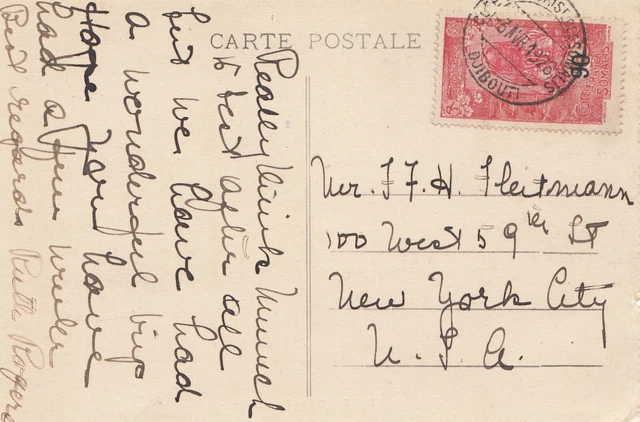 CARTE POSTALE
Really think Munich
is best after all
but we have had
a wonderful trip
Hope you have
had a fine winter
Best regards Ruth Rogers
DJIBOUTI
90
Mr. F. H. Fleitmann
100 West 59th St
New York City
U. S. A.